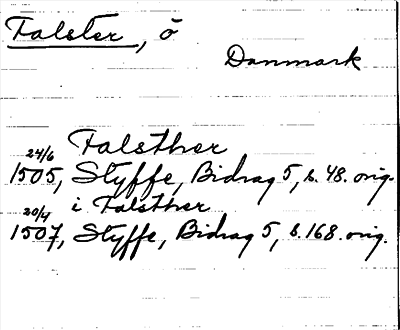 Falster, ö
Danmark
Falsther
24/6
1505, Styffe, Bidrag 5, s. 48. orig.
i Falsther
20/4
1507, Styffe, Bidrag 5, s. 168. orig.